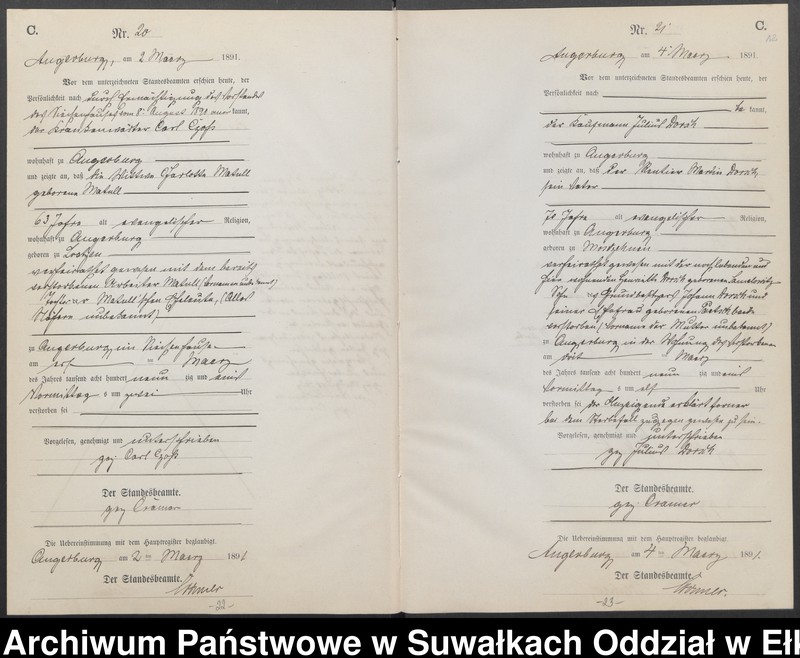 C.
Nr. 20
Angerburg, am 2 Maerz 1891.
Vor dem unterzeichneten Standesbeamten erschien heute, der
Persönlichkeit nach durch Ermächtigung des Vorstandes
des Siechenhauses vom 8. August 1890 aner kannt,
der Krankenwärter Carl
wohnhaft zu Angerburg
und zeigte an, daß die Wittwe Charlotte Matull
geborene Matull
63 Jahre alt evangelischer Religion,
wohnhaft zu Angerburg
geboren zu Loetzen
verheirathet gewesen mit dem bereits
verstorbenen Arbeiter Matull (Vornamen unbekannt)
Tochter der Matull'schen Eheleute,
unbekannt)
zu Angerburg im Siechenhause
am Maerz
des Jahres tausend acht hundert neun zig und eins
Vormittag s um zwei Uhr
verstorben sei
Vorgelesen, genehmigt und unterschrieben
gez Carl
Der Standesbeamte.
gez Cramer
Die Uebereinstimmung mit dem Hauptregister beglaubigt.
Angerburg am 2 ten Maerz 1891
Der Standesbeamte.
Cramer
-22-
C.
Nr. 21
Angerburg am 4 Maerz 1891.
Vor dem unterzeichneten Standesbeamten erschien heute, der
Persönlichkeit nach
be kannt,
der Kaufmann Julius Dorsch
wohnhaft zu Angerburg
und zeigte an, daß der Rentier Martin Dorsch,
sein Vater
70 Jahre alt evangelischer Religion,
wohnhaft zu Angerburg
geboren zu
verheirathet gewesen mit der noch lebenden und
hier wohnenden Henriette Dorsch geborenen
Sohn des Grundbesitzers Johann Dorsch und
seiner Ehefrau geborenen beide
verstorben (Vorname der Mutter unbekannt)
zu Angerburg in der Wohnung des Verstorbenen
am drei Maerz
des Jahres tausend acht hundert neun zig und eins
Vormittag s um elf Uhr
verstorben sei der Anzeigende erklärt ferner
bei dem Sterbefall zugegen gewesen zu sein.
Vorgelesen, genehmigt und unterschrieben
gez Julius Dorsch
Der Standesbeamte.
gez. Cramer
Die Uebereinstimmung mit dem Hauptregister beglaubigt.
Angerburg am 4 ten Maerz 1891.
Der Standesbeamte.
Cramer.
-23-
Archiwum Państwowe w Suwałkach Oddział w Ełk